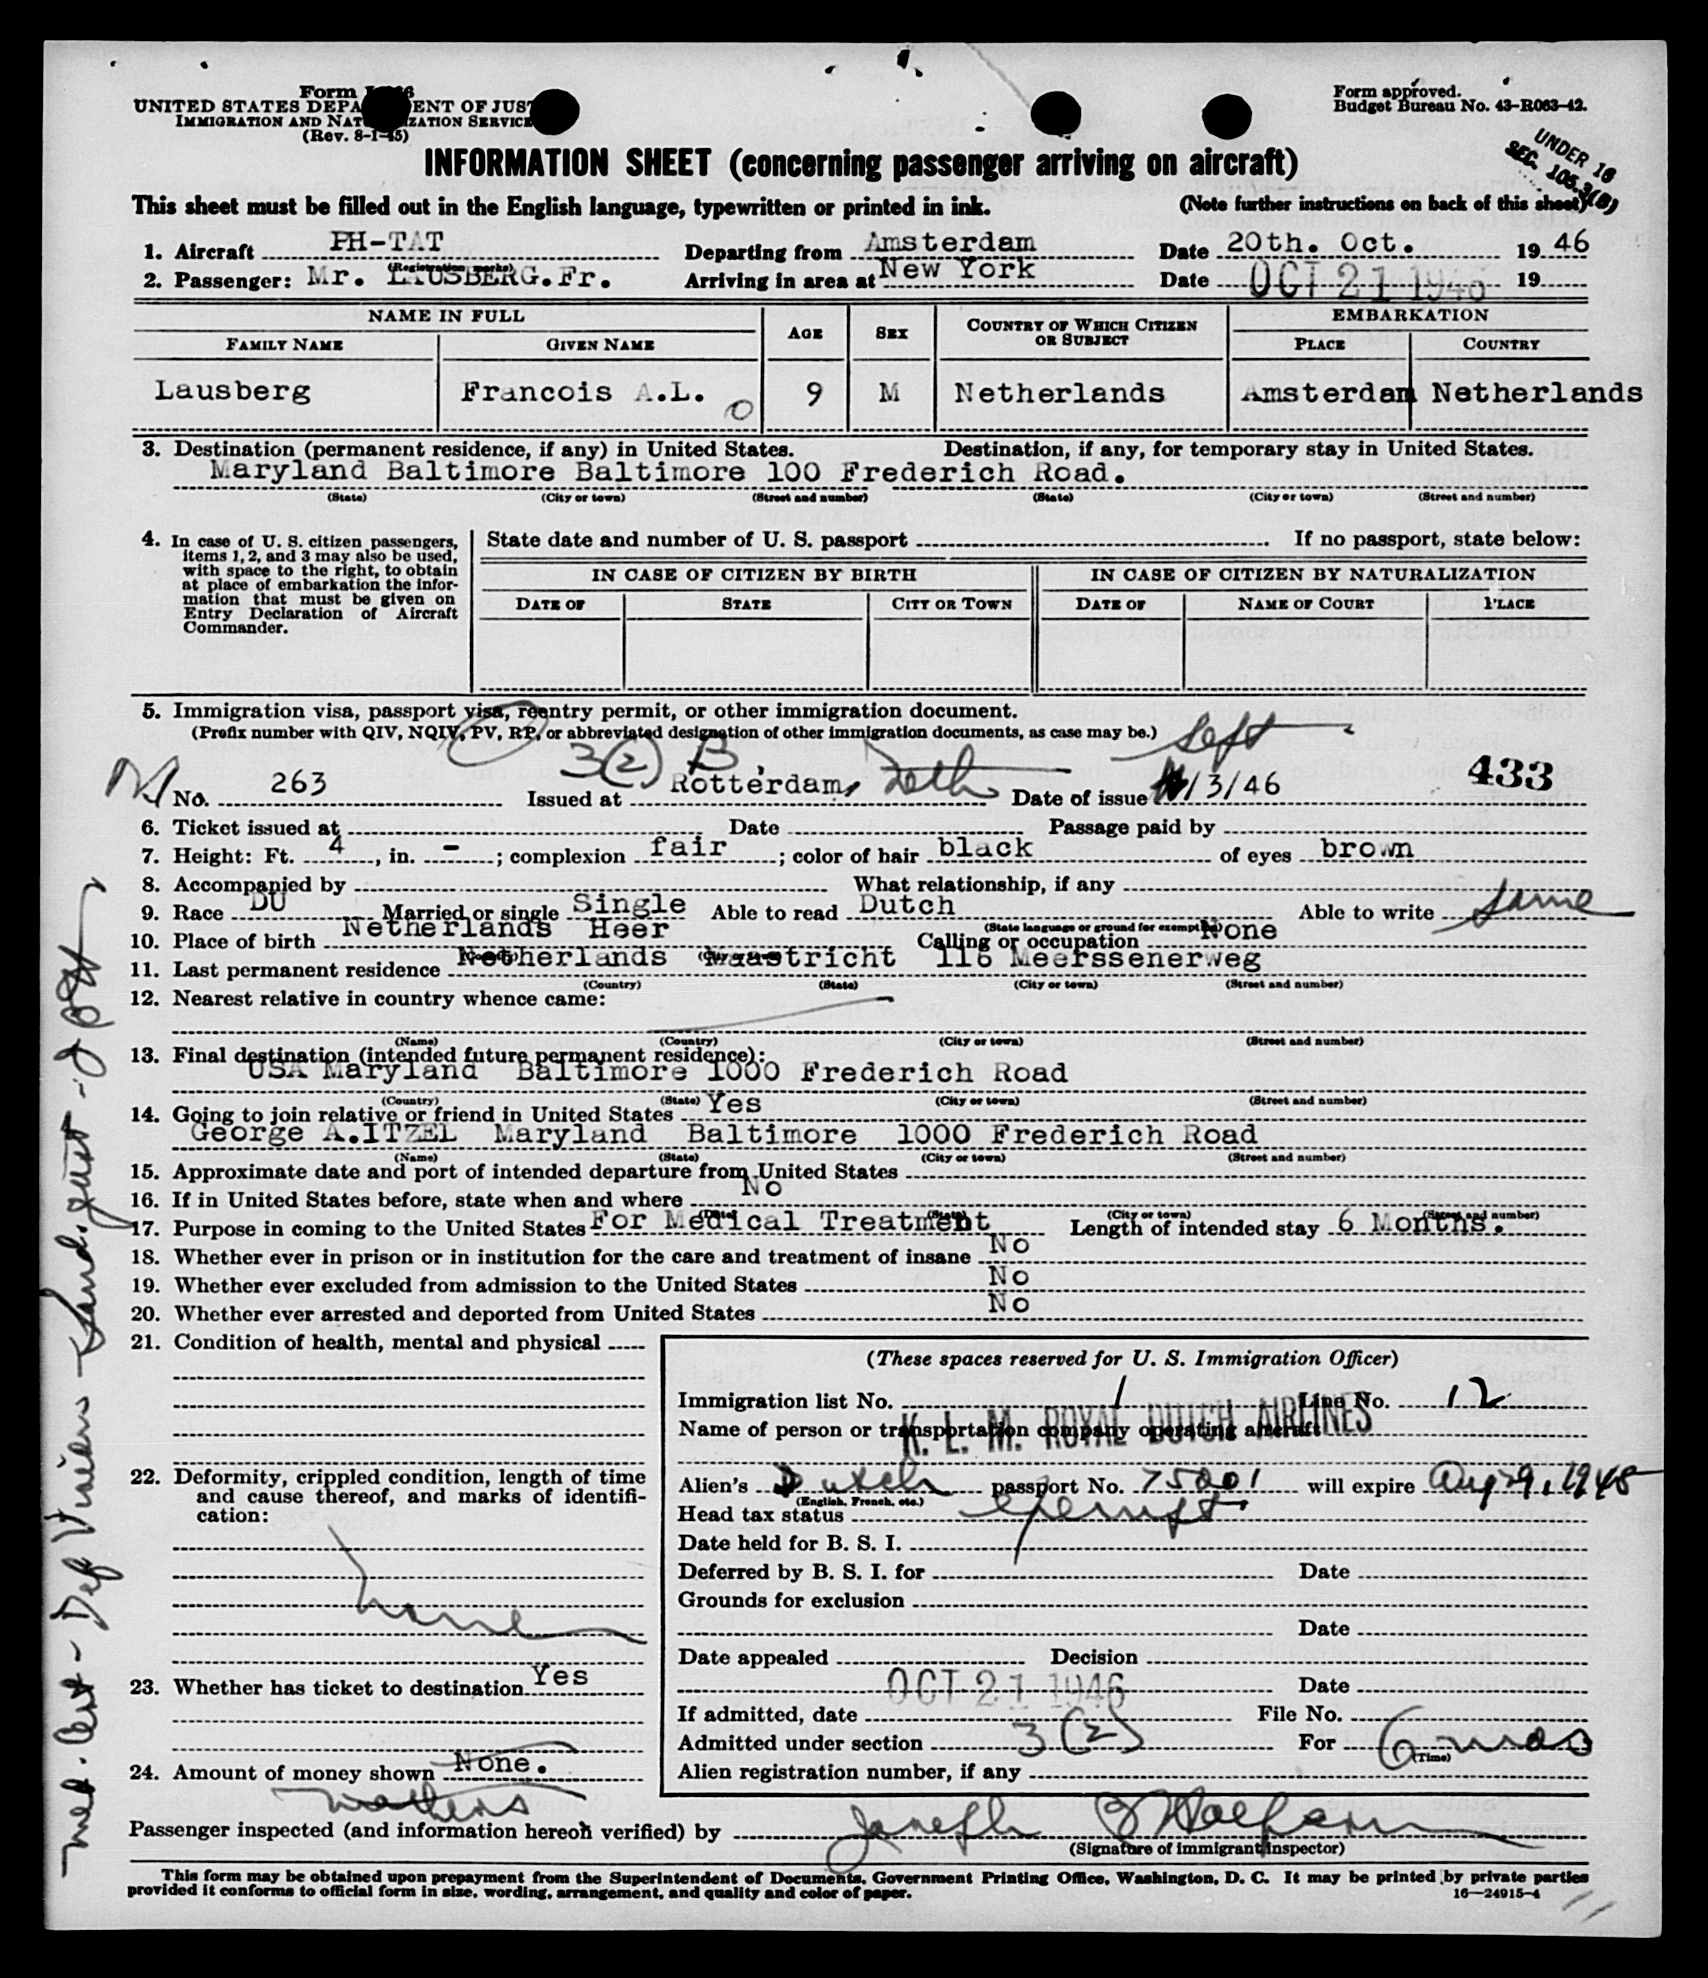 Form approved.
Budget Bureau No. 43-R063-42.
Form
UNITED STATES DEPA ENT OF JUST
IMMIGRATION AND NAT ZATION SERVICE
(Rev. 8-1-45)
UNDER 16
SEC. 105.3(B)
INFORMATION SHEET (concerning passenger arriving on aircraft)
This sheet must be filled out in the English language, typewritten or printed in ink. (Note further instructions on back of this sheet)
1. Aircraft PH-TAT Departing from Amsterdam Date 20th. Oct. 19 46
(Registration marks)
2. Passenger: Mr. LAUSBERG.Fr. Arriving in area at New York Date OCT 21 1946 19
NAME IN FULL AGE SEX COUNTRY OF WHICH CITIZEN OR SUBJECT EMBARKATION
FAMILY NAME GIVEN NAME PLACE COUNTRY
Lausberg Francois A.L. 0 9 M Netherlands Amsterdam Netherlands
3. Destination (permanent residence, if any) in United States. Destination, if any, for temporary stay in United States.
Maryland Baltimore Baltimore 100 Frederich Road.
(State) (City or town) (Street and number) (State) (City or town) (Street and number)
4. In case of U. S. citizen passengers, items 1, 2, and 3 may also be used, with space to the right, to obtain at place of embarkation the information that must be given on Entry Declaration of Aircraft Commander.
State date and number of U. S. passport If no passport, state below:
IN CASE OF CITIZEN BY BIRTH IN CASE OF CITIZEN BY NATURALIZATION
DATE OF STATE CITY OR TOWN DATE OF NAME OF COURT PLACE
5. Immigration visa, passport visa, reentry permit, or other immigration document.
(Prefix number with QIV, NQIV, PV, RP, or abbreviated designation of other immigration documents, as case may be.)
3(2) B, Sept 433
No. 263 Issued at Rotterdam, Neth Date of issue /3/46
6. Ticket issued at Date Passage paid by
7. Height: Ft. 4, in. -; complexion fair; color of hair black of eyes brown
8. Accompanied by What relationship, if any
9. Race DU Married or single Single Able to read Dutch Able to write Same
(State language or ground for exemption)
10. Place of birth Netherlands Heer Calling or occupation None
11. Last permanent residence Netherlands Maastricht 116 Meerssenerweg
(Country) (State) (City or town) (Street and number)
12. Nearest relative in country whence came:
(Name) (Country) (City or town) (Street and number)
13. Final destination (intended future permanent residence):
USA Maryland Baltimore 1000 Frederich Road
(Country) (State) (City or town) (Street and number)
14. Going to join relative or friend in United States Yes
George A.ITZEL Maryland Baltimore 1000 Frederich Road
(Name) (State) (City or town) (Street and number)
15. Approximate date and port of intended departure from United States
16. If in United States before, state when and where No
(Date) (State) (City or town) (Street and number)
17. Purpose in coming to the United States For Medical Treatment Length of intended stay 6 Months.
18. Whether ever in prison or in institution for the care and treatment of insane No
19. Whether ever excluded from admission to the United States No
20. Whether ever arrested and deported from United States No
21. Condition of health, mental and physical
22. Deformity, crippled condition, length of time and cause thereof, and marks of identification:
None
23. Whether has ticket to destination Yes
24. Amount of money shown None.
mothers
(These spaces reserved for U. S. Immigration Officer)
Immigration list No. 1 Line No. 12
Name of person or transportation company operating aircraft
K. L. M. ROYAL DUTCH AIRLINES
Alien's Dutch passport No. 75201 will expire Aug 9, 1948
(English, French, etc.)
Head tax status exempt
Date held for B. S. I.
Deferred by B. S. I. for Date
Grounds for exclusion
Date
Date appealed Decision
OCT 21 1946 Date
If admitted, date File No.
Admitted under section 3(2) For 6 mos
(Time)
Alien registration number, if any
Passenger inspected (and information hereon verified) by Joseph
(Signature of immigrant inspector)
This form may be obtained upon prepayment from the Superintendent of Documents, Government Printing Office, Washington, D. C. It may be printed by private parties
provided it conforms to official form in size, wording, arrangement, and quality and color of paper. 16—24915-4
Med. Cert -